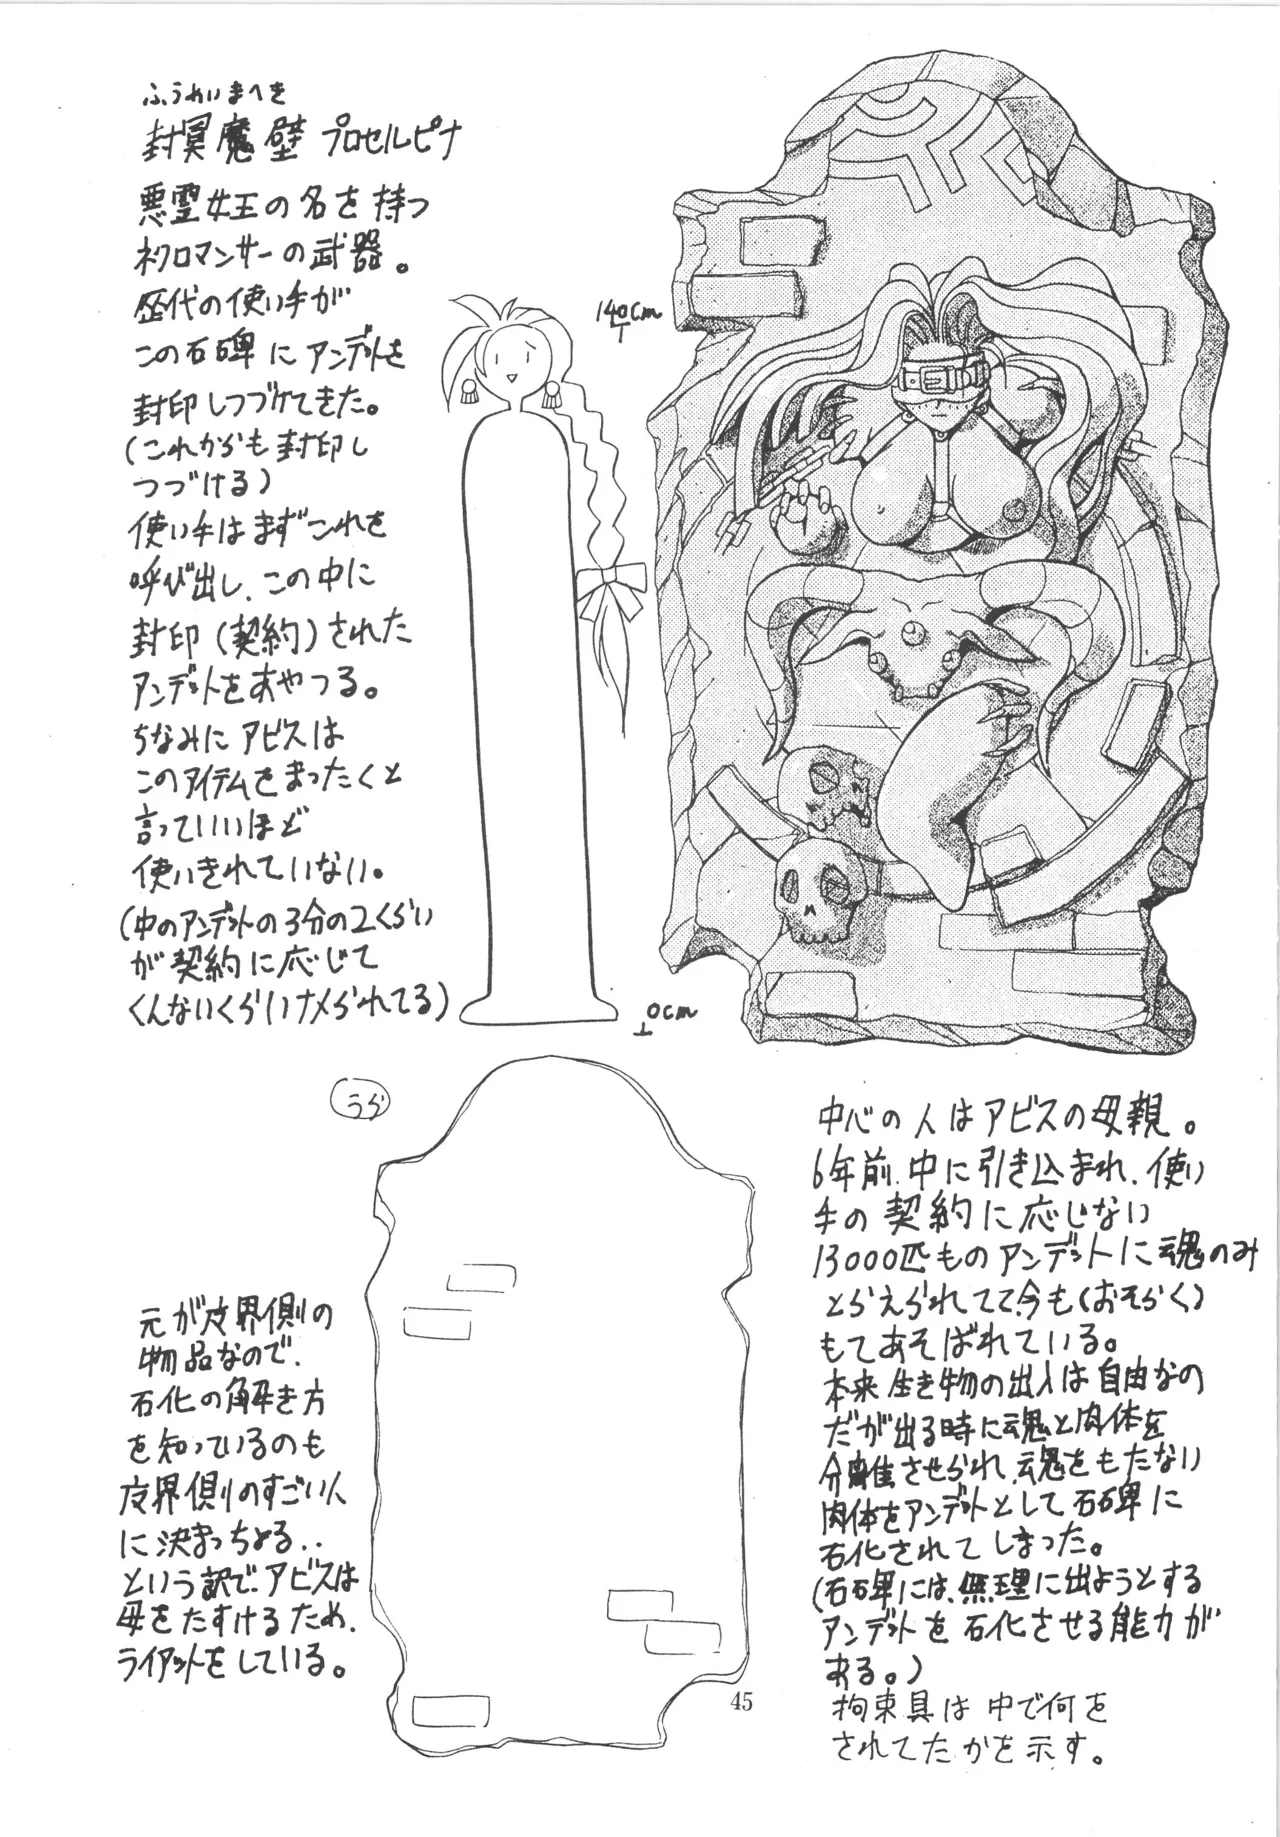 ふうめいまへき
封冥魔壁 プロセルピナ
悪霊女王の名を持つ
ネクロマンサーの武器。
歴代の使い手が
この石碑にアンデットを
封印しつづけてきた。
(これからも封印し
つづける)
使い手はまずこれを
呼び出し、この中に
封印(契約)された
アンデットをあやつる。
ちなみにアビスは
このアイテムをまったくと
言っていいほど
使いきれていない。
(中のアンデットの3分の2くらい
が契約に応じて
くんないくらいナメられてる)
140cm
0cm
うら
元が皮界側の
物品なので、
石化の解き方
を知っているのも
皮界側のすごい人
に決まっちょる..
という訳で、アビスは
母をたすけるため、
ライアットをしている。
中心の人はアビスの母親。
6年前、中に引き込まれ、使い
手の契約に応じない
13000匹ものアンデットに魂のみ
とらえられてて、今も(おそらく)
もてあそばれている。
本来生き物の出入は自由なの
だが出る時に魂と肉体を
分離させられ、魂をもたない
肉体をアンデットとして石碑に
石化されてしまった。
(石碑には、無理に出ようとする
アンデットを石化させる能力が
ある。)
拘束具は中で何を
されてたかを示す。
45